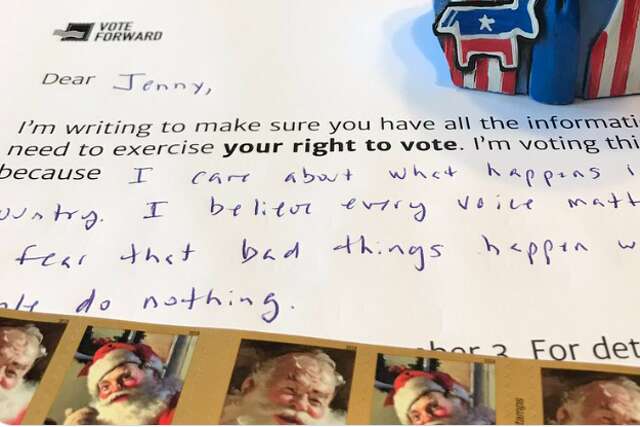 VOTE
FORWARD
Dear Jenny,
I'm writing to make sure you have all the informati
need to exercise your right to vote. I'm voting thi
because I care about what happens i
ountry. I believe every voice matt
fear that bad things happen w
do nothing.
ber 3. For det